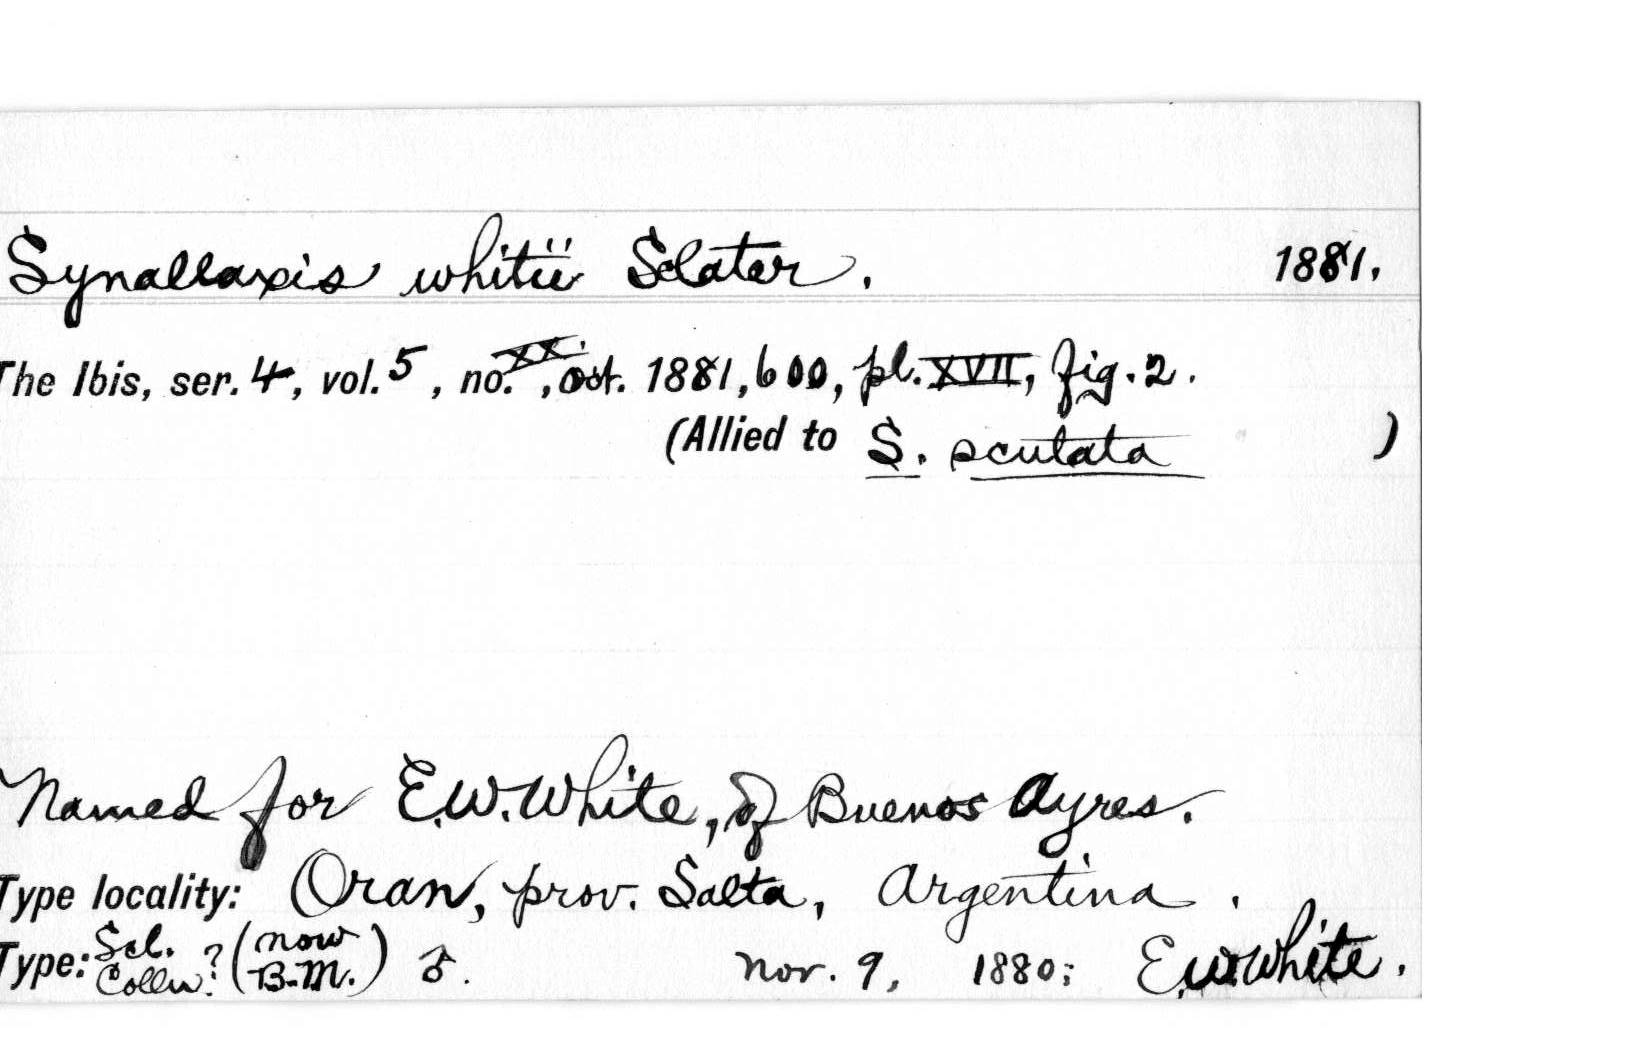 Synallaxis whitii Sclater. 1881.
The Ibis, ser. 4, vol. 5, no. XX., Oct. 1881, 600, pl. XVII, fig. 2.
(Allied to S. scutata )
Named for E.W. White, of Buenos Ayres.
Type locality: Oran, prov. Salta, Argentina.
Type: Scl. Colln.? (now B.M.) ♂. Nov. 9, 1880; E.W. White.